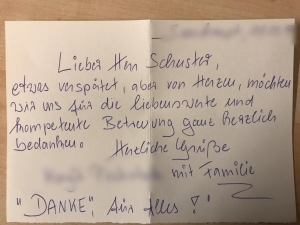 Lieber Herr Schuster,
etwas verspätet, aber von Herzen, möchten
wir uns für die liebenswerte und
kompetente Betreuung ganz herzlich
bedanken.
Herzliche Grüße
mit Familie
"DANKE", für Alles!